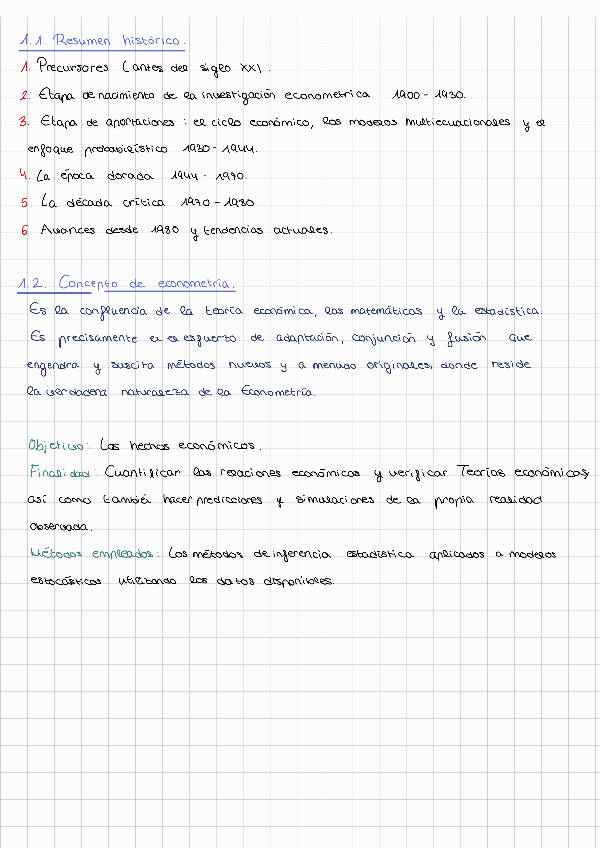 1.1 Resumen histórico.
1. Precursores (antes del siglo XX).
2. Etapa de nacimiento de la investigación econometrica 1900 - 1930.
3. Etapa de aportaciones : el ciclo económico, los modelos multiecuacionales y el
enfoque probabilístico 1930 - 1944.
4. La época dorada 1944 - 1970.
5 La década crítica 1970 - 1980
6 Avances desde 1980 y tendencias actuales.
1.2. Concepto de econometría.
Es la confluencia de la teoría económica, las matemáticas y la estadística.
Es precisamente en es esfuerzo de adaptación, conjunción y fusión que
engendra y suscita métodos nuevos y a menudo originales, donde reside
la verdadera naturaleza de la Econometría.
Objetivo: Los hechos económicos.
Finalidad: Cuantificar las relaciones económicas y verificar Teorías económicas,
así como también hacer predicciones y simulaciones de la propia realidad
observada.
Métodos empleados: Los métodos de inferencia estadística aplicados a modelos
estocásticos utilizando los datos disponibles.